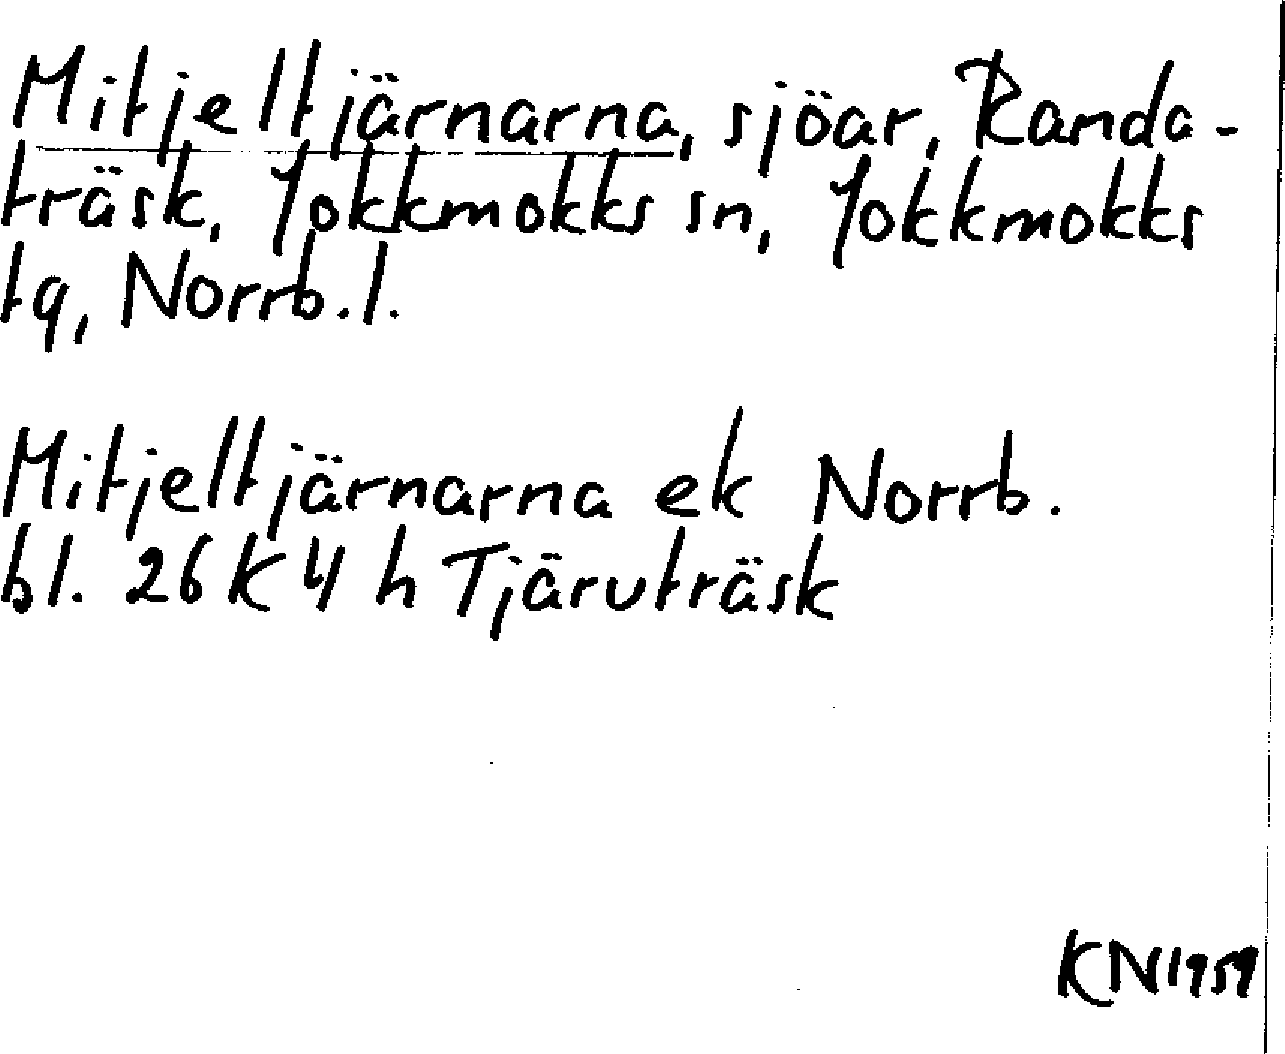 Mitjeltjärnarna, sjöar, Randa-
träsk, Jokkmokks sn, Jokkmokks
tg, Norrb.l.
Mitjeltjärnarna ek Norrb.
bl. 26 K 4 h Tjäruträsk
KN 1959